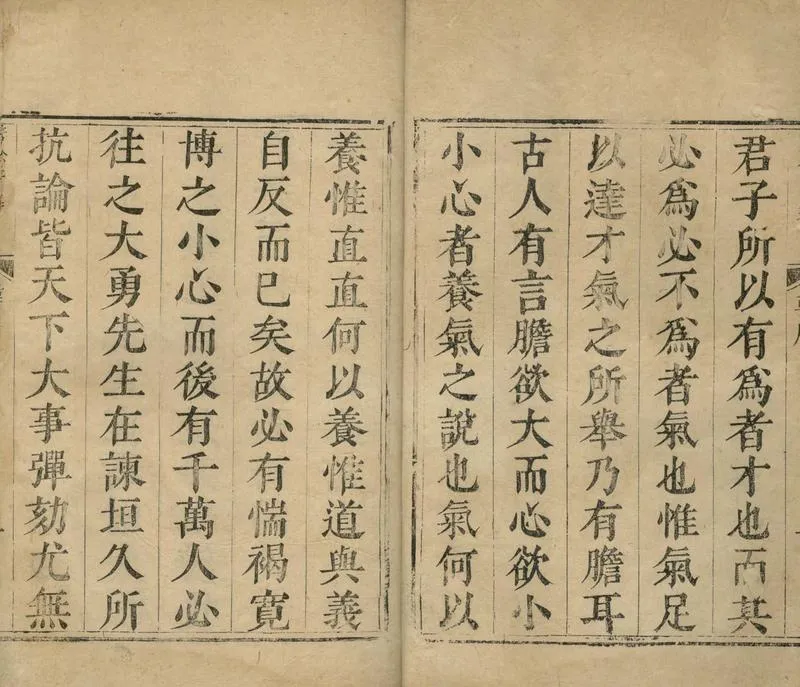 君子所以有爲者才也而其
必爲必不爲者氣也惟氣足
以達才氣之所舉乃有膽耳
古人有言膽欲大而心欲小
小心者養氣之說也氣何以
養惟直直何以養惟道與義
自反而已矣故必有惴褐寛
博之小心而後有千萬人必
往之大勇先生在諫垣久所
抗論皆天下大事彈劾尤無